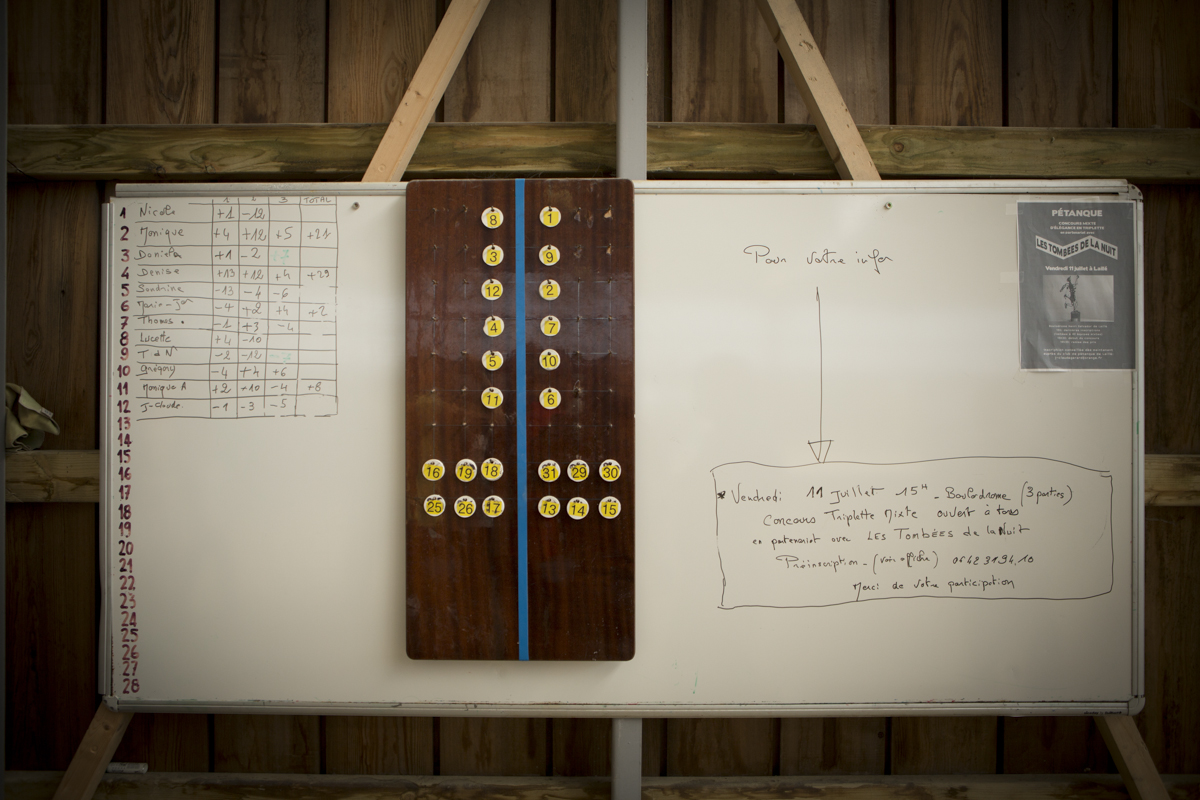 1 2 3 TOTAL
1 Nicole +1 -12
2 Monique +4 +12 +5 +21
3 Daniela +1 -2
4 Denise +13 +12 +4 +29
5 Sandrine -13 -4 -6
6 -4 +2 +4 +2
7 Thomas -1 +3 -4
8 Lucette +4 -10
9 T d N -2 -12
10 Grégory -4 +4 +6
11 Monique A +2 +10 -4 +8
12 J-Claude -1 -3 -5
13
14
15
16
17
18
19
20
21
22
23
24
25
26
27
28
8 1
3 9
12 2
4 7
5 10
11 6
16 19 18 31 29 30
25 26 17 13 14 15
Pour votre infor
Vendredi 11 Juillet 15H - Boulodrome (3 parties)
Concours Triplette Mixte ouvert à tous
en partenariat avec LES TOMBÉES de la Nuit
Préinscription - (voir affiche) 06 42 31 94.10
Merci de votre participation
PÉTANQUE
CONCOURS MIXTE
D'ÉLÉGANCE EN TRIPLETTE
en partenariat avec
LES TOMBÉES DE LA NUIT
Vendredi 11 juillet à Laillé